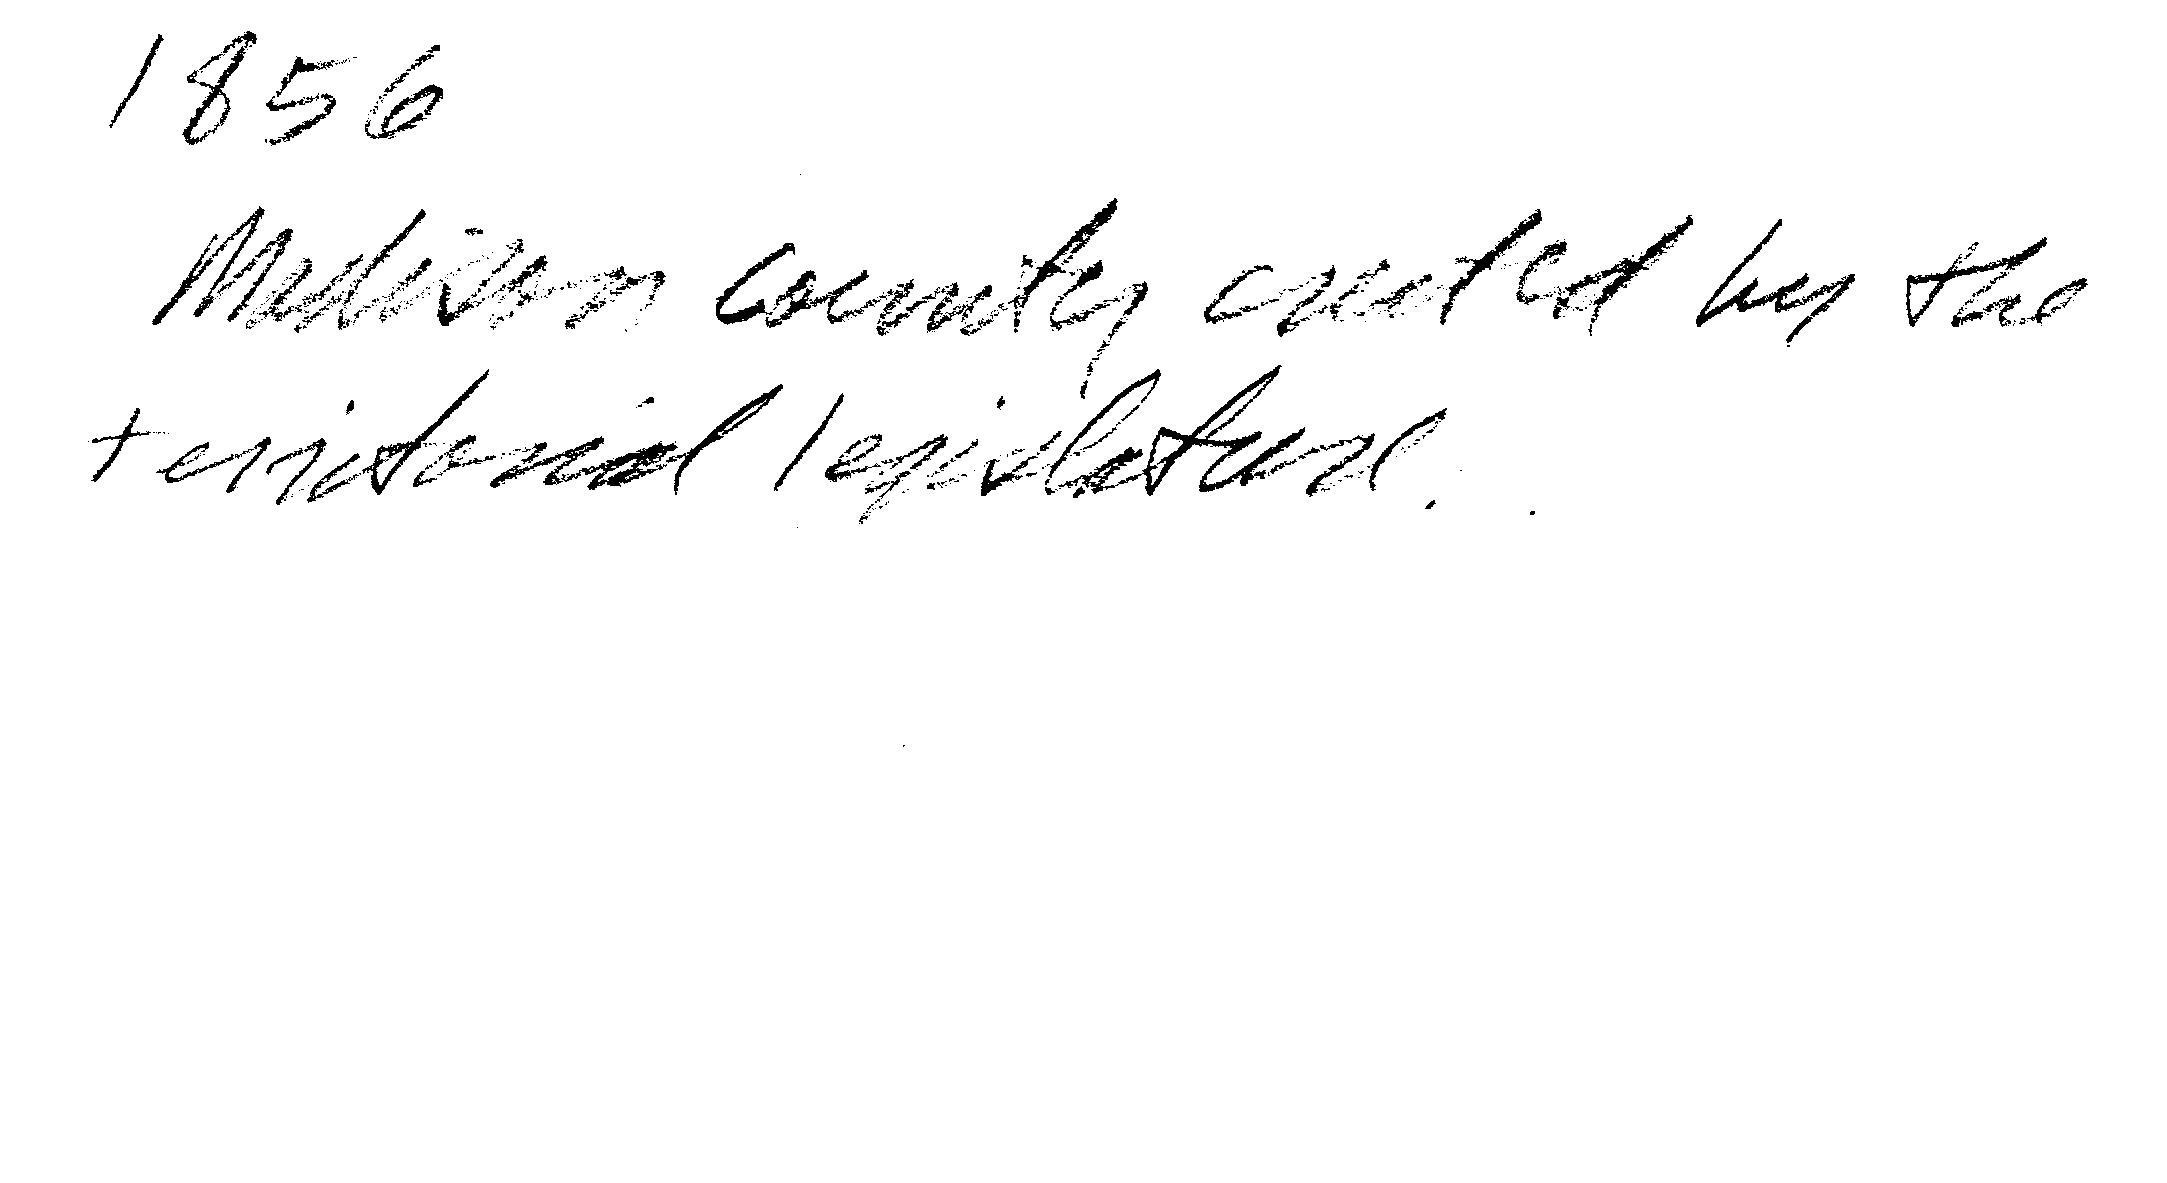 1856
Madison county created by the
territorial legislature.